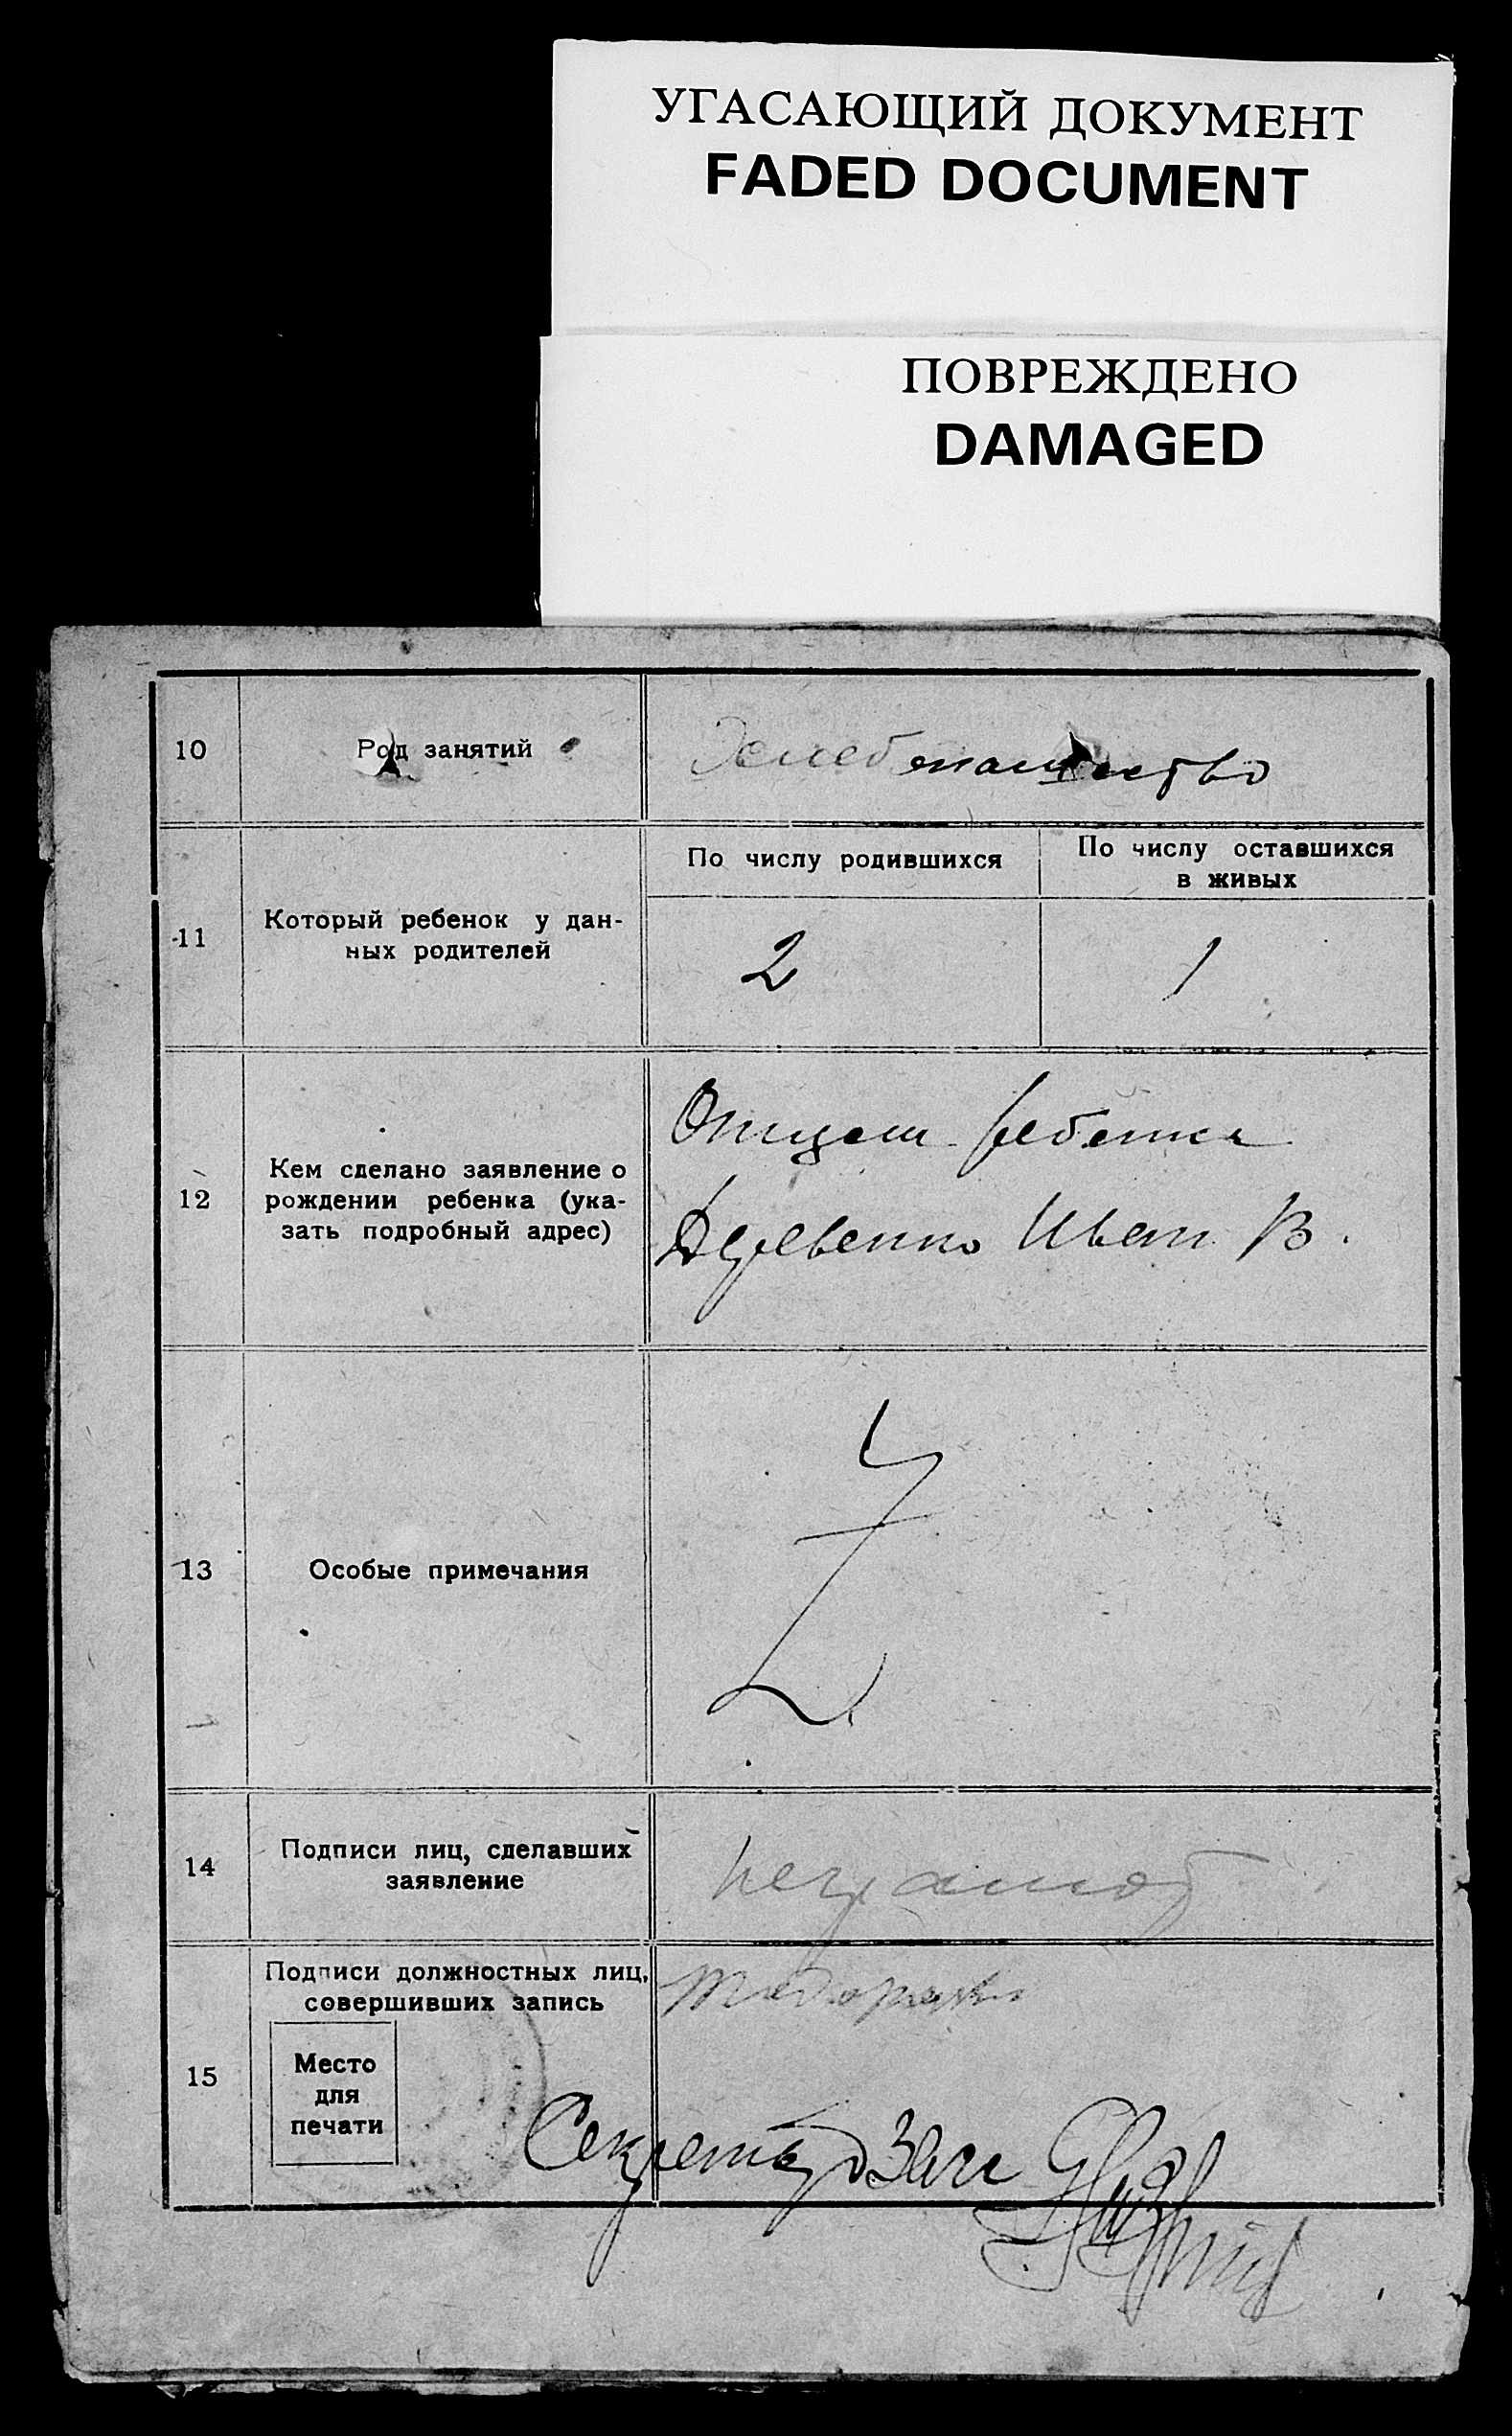 УГАСАЮЩИЙ ДОКУМЕНТ
FADED DOCUMENT
ПОВРЕЖДЕНО
DAMAGED
10
Род занятий
Хлебопашество
11
Который ребенок у дан-
ных родителей
По числу родившихся
2
По числу оставшихся
в живых
1
12
Кем сделано заявление о
рождении ребенка (ука-
зать подробный адрес)
Отцем ребенка
Деревенко Иван В.
13
Особые примечания
Z
14
Подписи лиц, сделавших
заявление
неграмот
15
Подписи должностных лиц,
совершивших запись
Место
для
печати
Секретарь